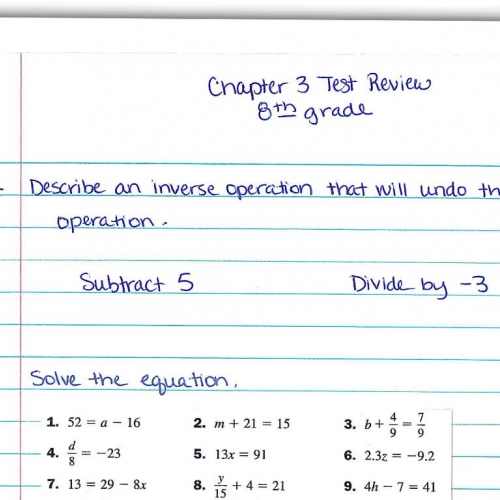 Chapter 3 Test Review
8th grade
Describe an inverse operation that will undo
operation.
Subtract 5 Divide by -3
Solve the equation.
1. 52 = a − 16 2. m + 21 = 15 3. b + 4/9 = 7/9
4. d/8 = −23 5. 13x = 91 6. 2.3z = −9.2
7. 13 = 29 − 8x 8. y/15 + 4 = 21 9. 4h − 7 = 41